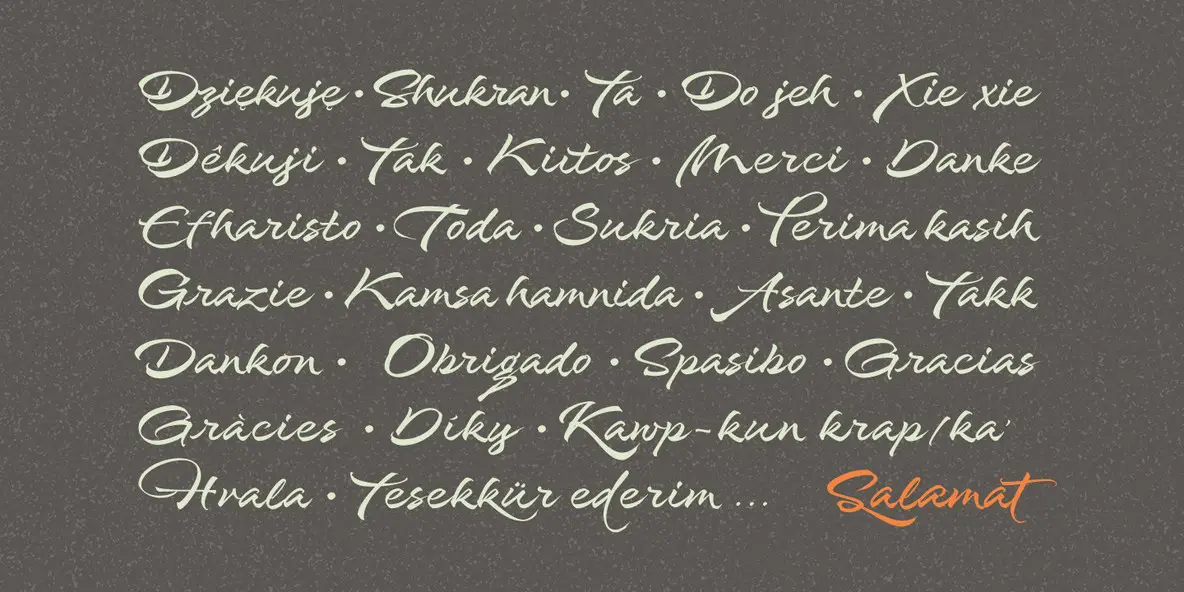 Dziękuję • Shukran • Ta • Do jeh • Xie xie
Dêkuji • Tak • Kiitos • Merci • Danke
Efharisto • Toda • Sukria • Terima kasih
Grazie • Kamsa hamnida • Asante • Takk
Dankon • Obrigado • Spasibo • Gracias
Gràcies • Díky • Kawp-kun krap/ka'
Hvala • Tesekkür ederim ... Salamat